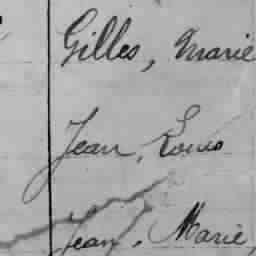 Gilles, Marie
Jean, Louis
Jean, Marie,